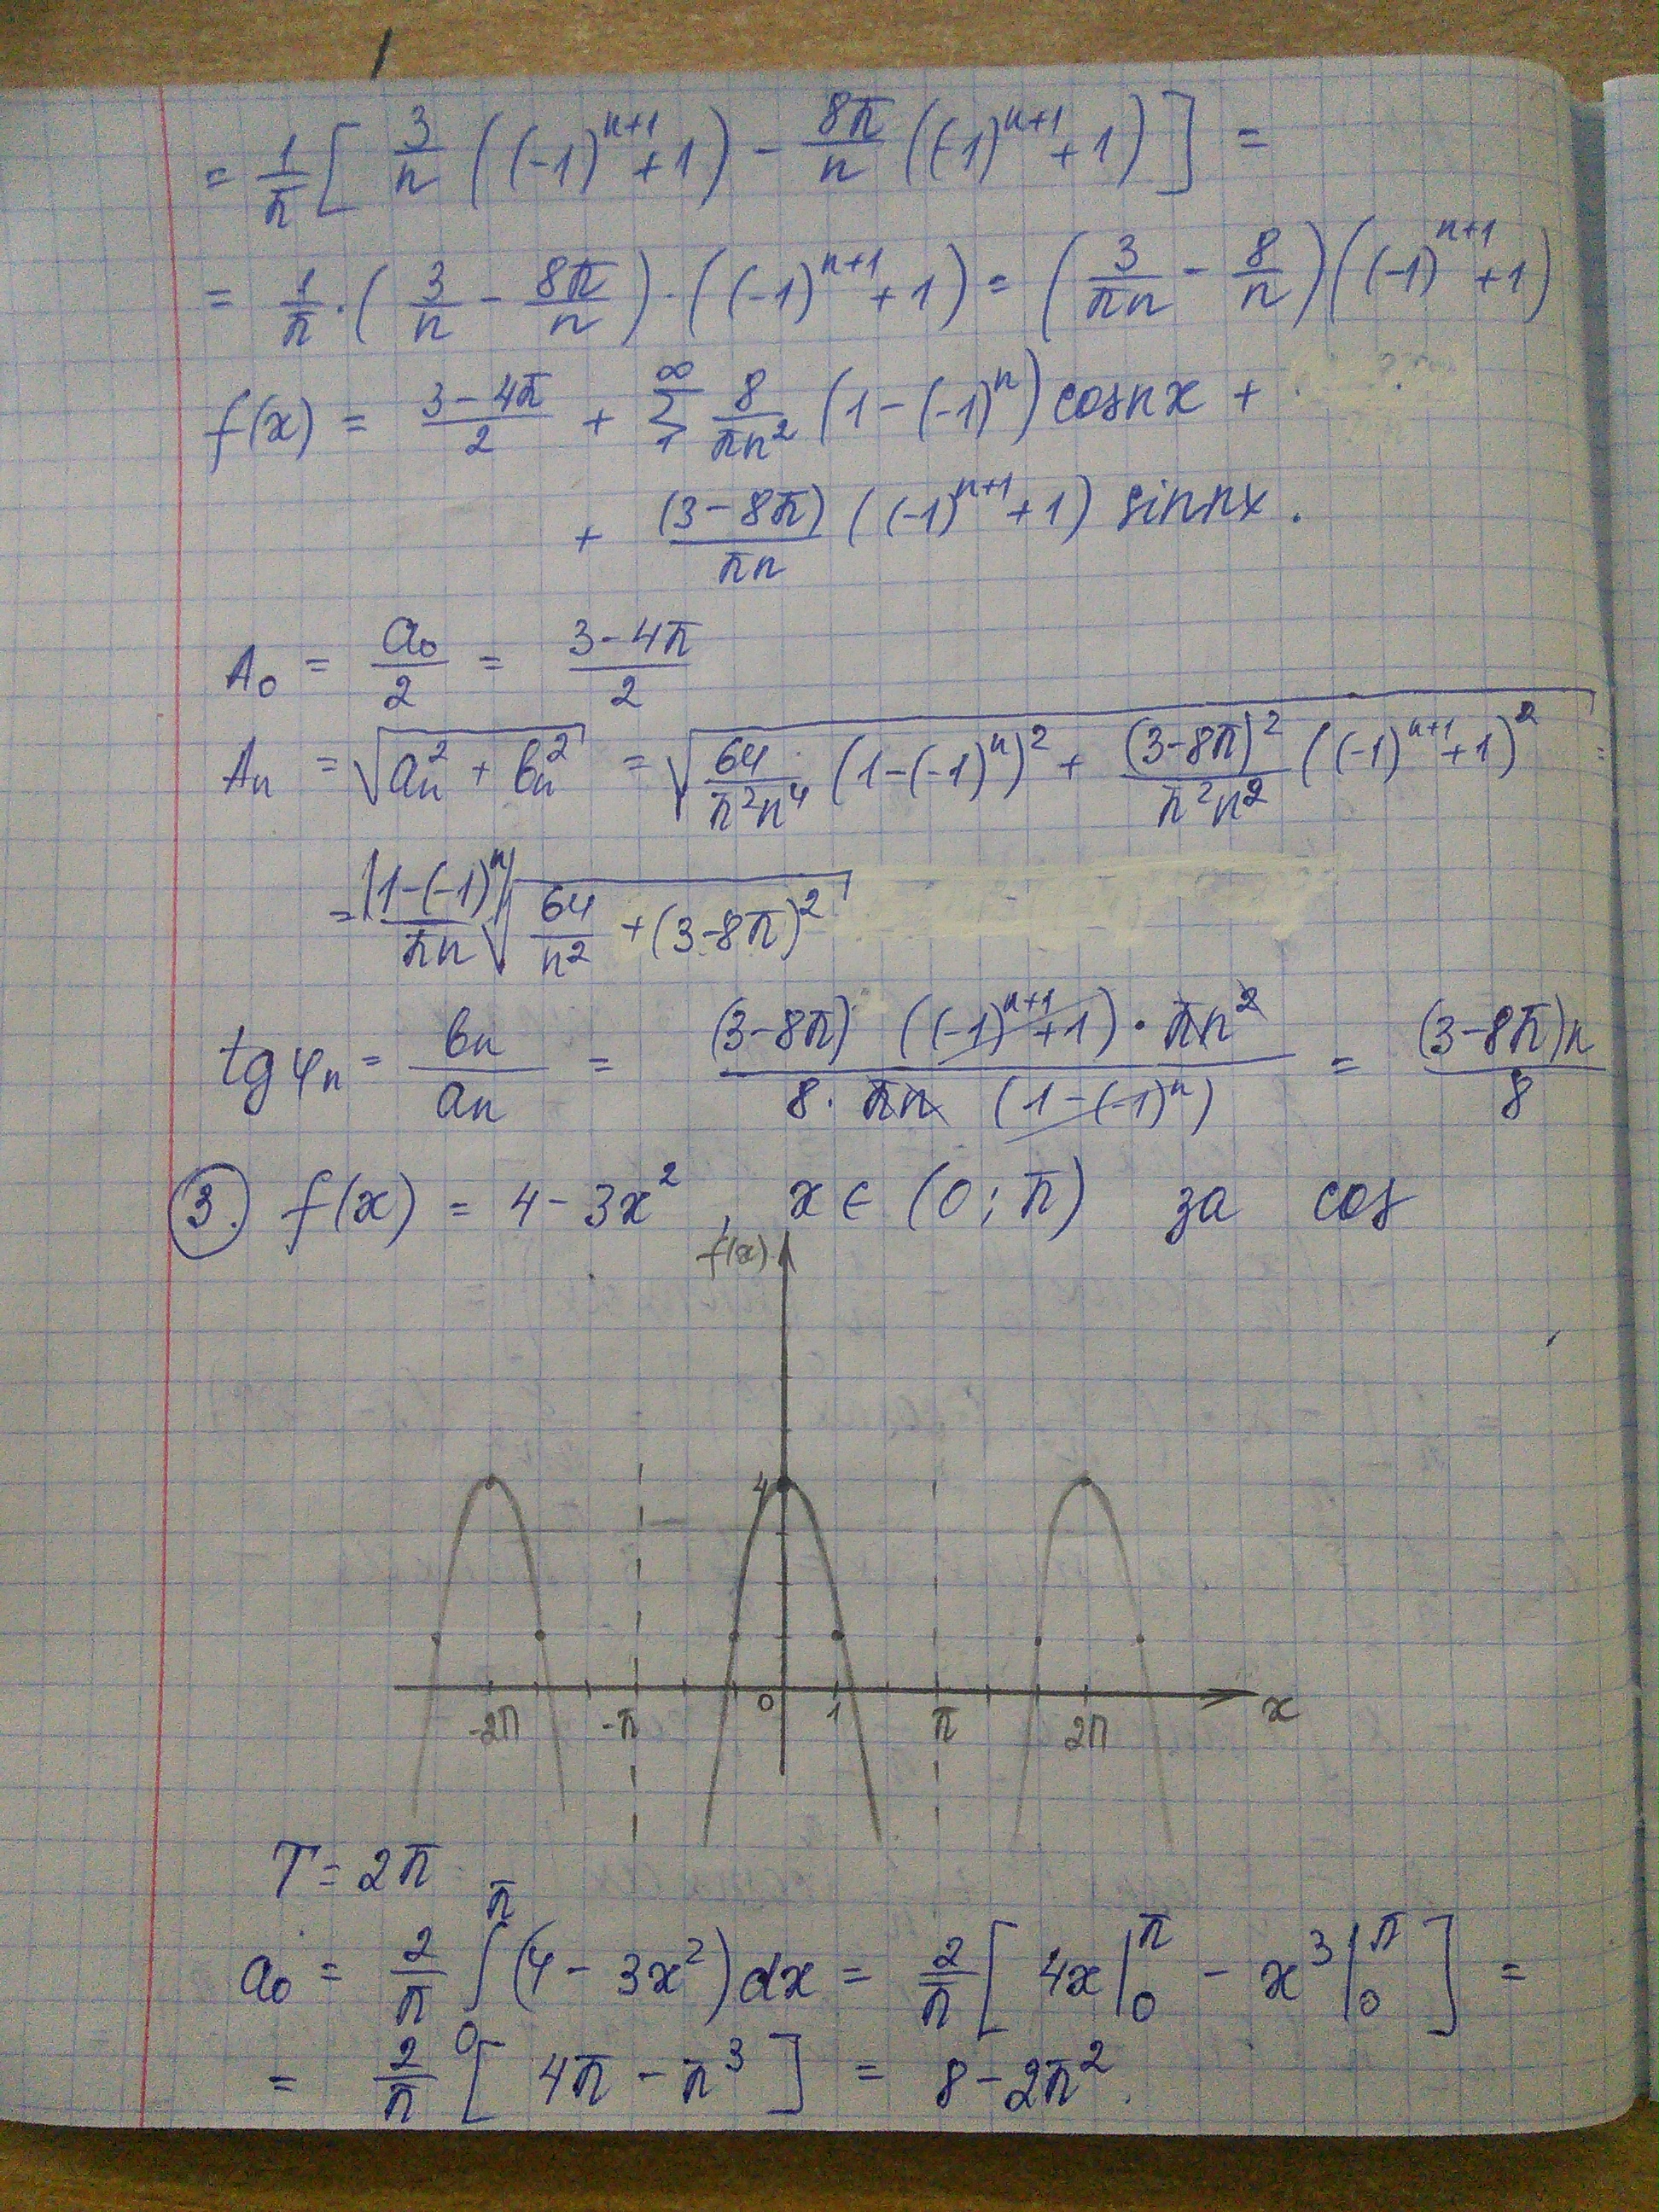 = 1/π [ 3/n ((-1)^{n+1} + 1) - 8π/n ((-1)^{n+1} + 1) ] =
= 1/π · ( 3/n - 8π/n ) · ((-1)^{n+1} + 1) = ( 3/πn - 8/n )((-1)^{n+1} + 1)
f(x) = (3-4π)/2 + ∑_{1}^{∞} 8/πn² (1-(-1)^n) cosnx +
+ (3-8π)/πn ((-1)^{n+1} + 1) sinnx.
A₀ = a₀/2 = (3-4π)/2
Aₙ = √(aₙ² + bₙ²) = √( 64/π²n⁴ (1-(-1)^n)² + (3-8π)²/π²n² ((-1)^{n+1} + 1)² ) =
= |1-(-1)^n|/πn √( 64/n² + (3-8π)² )
tg φₙ = bₙ/aₙ = (3-8π) ((-1)^{n+1} + 1) · πn² / 8 · πn (1-(-1)^n) = (3-8π)n/8
3. f(x) = 4 - 3x², x ∈ (0; π) за cos
f(x)
4
-2π -π 0 1 π 2π x
T = 2π
a₀ = 2/π ∫_{0}^{π} (4 - 3x²)dx = 2/π [ 4x|_{0}^{π} - x³|_{0}^{π} ] =
= 2/π [ 4π - π³ ] = 8 - 2π².